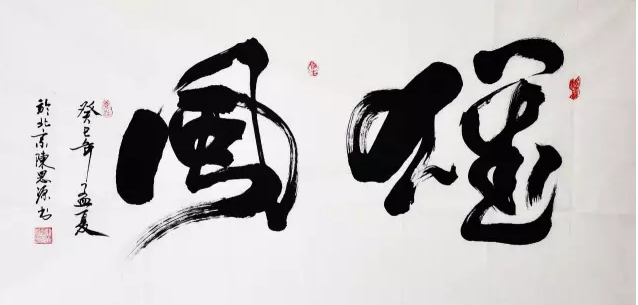 雄風
癸巳年孟夏
於北京陳思源书